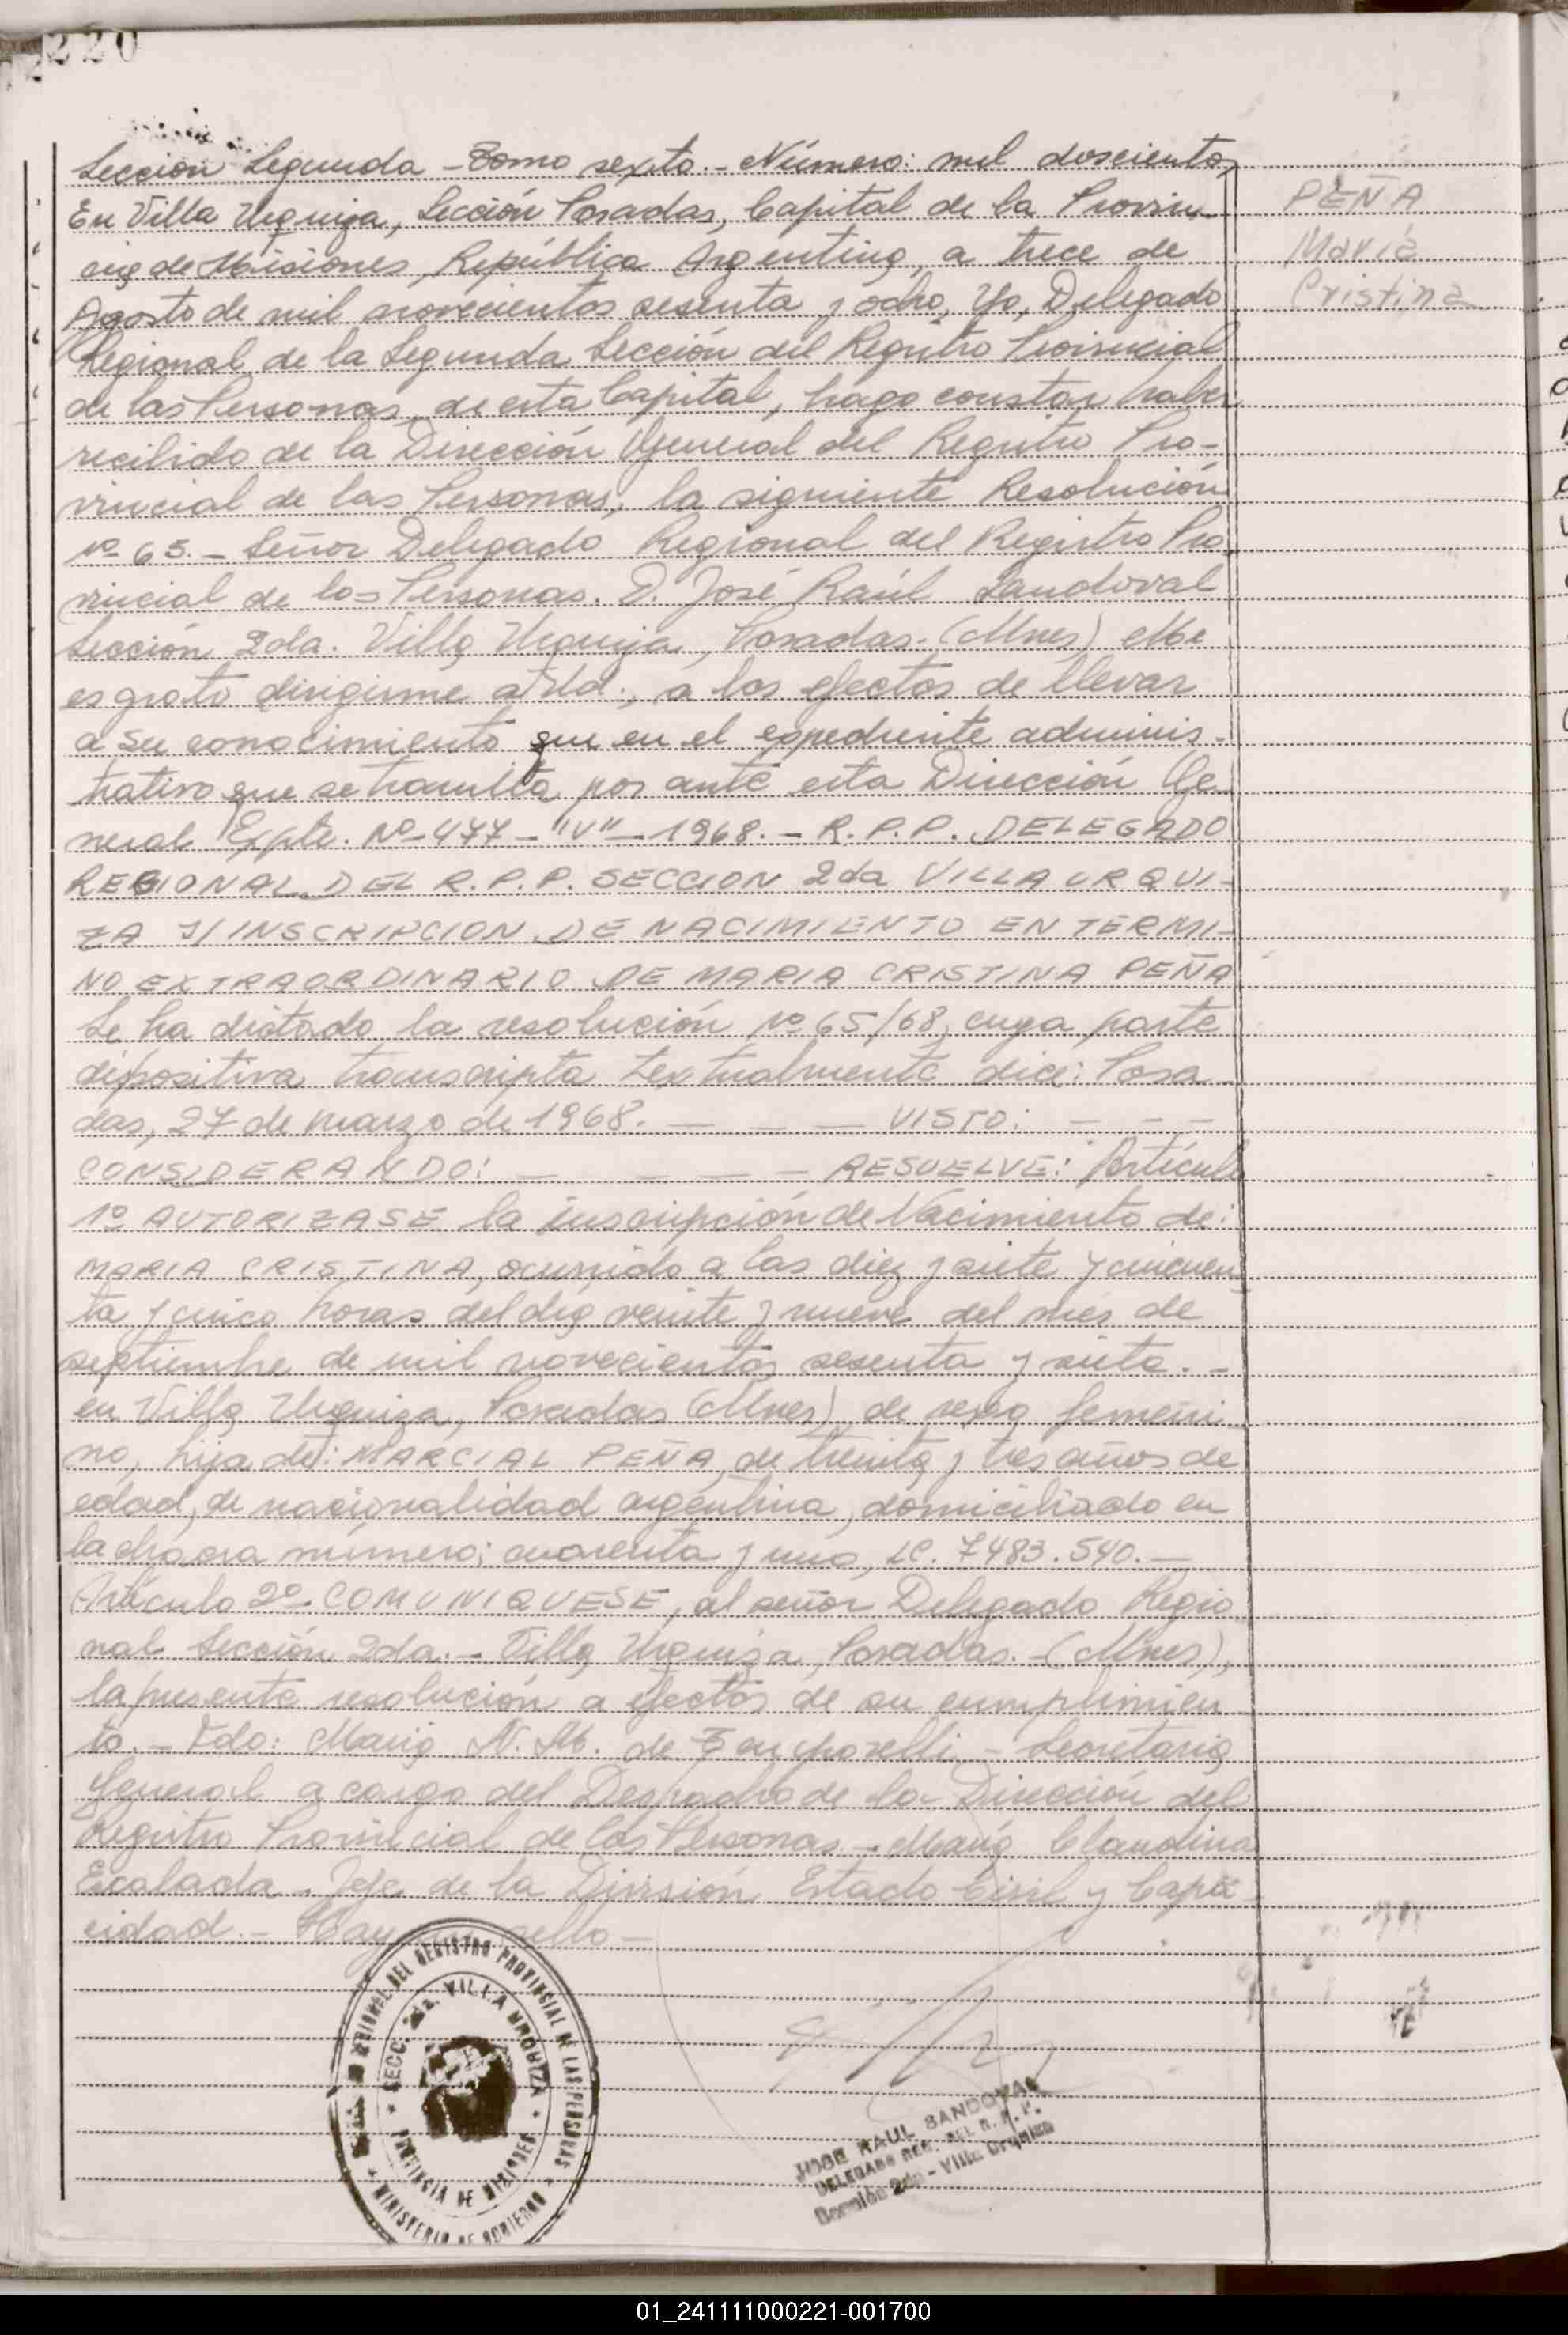 220
Sección Segunda - Tomo sexto. - Número: mil doscientos
En Villa Urquiza, Sección Posadas, Capital de la Provin-
cia de Misiones, República Argentina, a trece de
Agosto de mil novecientos sesenta y ocho, Yo, Delegado
Regional de la Segunda Sección del Registro Provincial
de las Personas, de esta Capital, hago constar haber
recibido de la Dirección General del Registro Pro-
vincial de las Personas, la siguiente Resolución
Nº 65. - Señor Delegado Regional del Registro Pro
vincial de las Personas. D. José Raúl Sandoval
Sección 2da. Villa Urquiza, Posadas. (Mnes) Me
es grato dirigirme a Ud., a los efectos de llevar
a su conocimiento que en el expediente adminis-
trativo que se tramita por ante esta Dirección Ge
neral Expte. Nº 477 - "V" - 1968. - R.P.P. DELEGADO
REGIONAL DEL R.P.P. SECCION 2da VILLA URQUI-
ZA S/INSCRIPCION DE NACIMIENTO EN TERMI-
NO EXTRAORDINARIO DE MARIA CRISTINA PEÑA
Se ha dictado la resolución Nº 65/68, cuya parte
dipositiva transcripta textualmente dice: Posa
das, 27 de marzo de 1968. — — — VISTO: — — —
CONSIDERANDO: — — — — RESUELVE: Artículo
1º AUTORIZASE la inscripción de Nacimiento de:
MARIA CRISTINA, ocurrido a las diez y siete y cincuen
ta y cinco horas del día veinte y nueve del mes de
septiembre de mil novecientos sesenta y siete. -
en Villa Urquiza, Posadas (Mnes) de sexo femeni
no, hija de: MARCIAL PEÑA, de treinta y tres años de
edad, de nacionalidad argentina, domiciliado en
la chacra número: cuarenta y uno, LC. 7483.540. —
Artículo 2º COMUNIQUESE, al señor Delegado Regio
nal Sección 2da. - Villa Urquiza, Posadas. - (Mnes),
la presente resolución a efectos de su cumplimien
to. - Fdo: María N. M. de - Secretaria
General a cargo del Despacho de la Dirección del
Registro Provincial de las Personas. - María Claudina
Escalada. Jefe de la División Estado Civil y Capa-
cidad. - Hay sello —
PEÑA
María
Cristina
REGIONAL DEL REGISTRO PROVINCIAL DE LAS PERSONAS
SECC. 2da. VILLA URQUIZA
PROVINCIA DE MISIONES
MINISTERIO DE GOBIERNO
JOSE RAUL SANDOVAL
DELEGADO REG. DEL R. P. P.
Sección 2da - Villa Urquiza
01_241111000221-001700